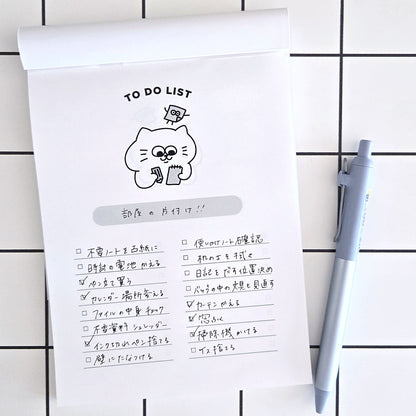 TO DO LIST
部屋の片付け!!
不要ノートを古紙に
時計の電池かえる
ペン立て買う
カレンダー場所変える
ファイルの中身チェック
不要資料シュレッダー
インク切れペン捨てる
壁にたなつける
使いかけノート確認
机の上を拭く
日記をだす位置決め
バッグの中の文具を見直す
カーテンかえる
窓ふく
掃除機かける
イス捨てる